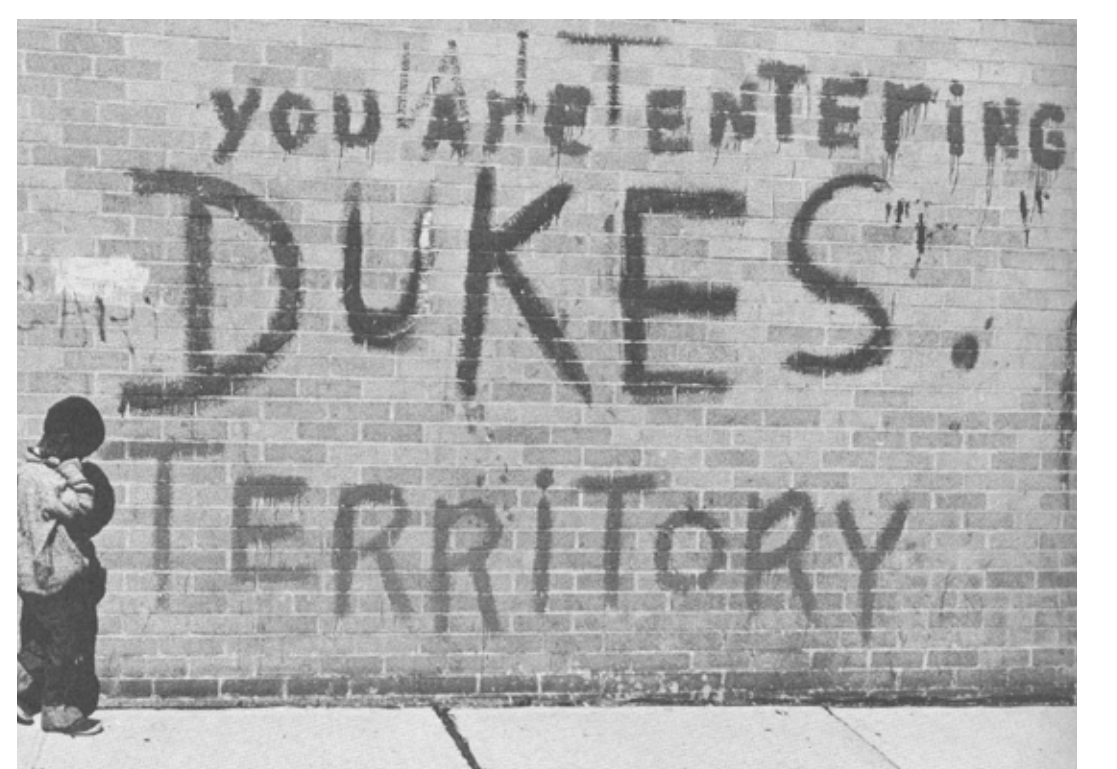 you Are ENTEriNG
DUKES.
TERRiToRY